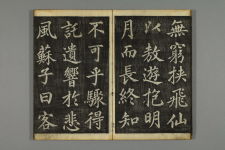 無窮挾飛仙
以敖遊抱明
月而長終知
不可乎驟得
託遺響於悲
風蘇子曰客